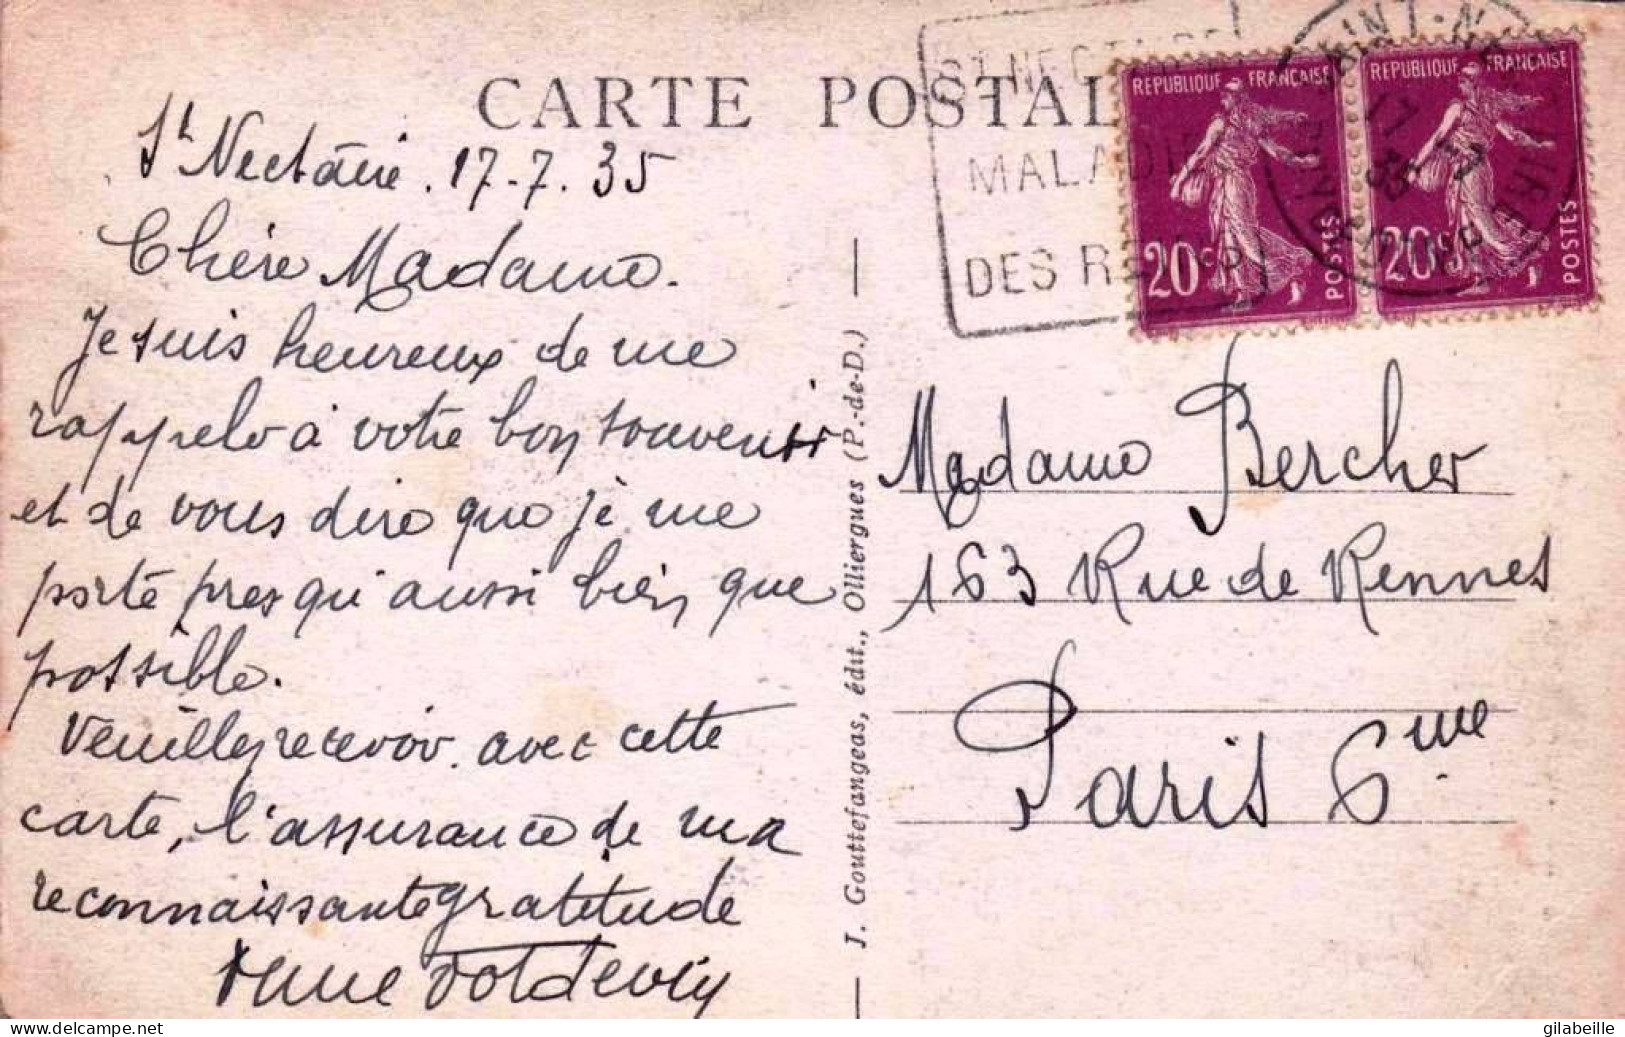 CARTE POSTALE
ST NECTAIRE
MALADIE
DES REINS
SAINT-NECTAIRE
17 -7
35
PUY-DE-DOME
REPUBLIQUE FRANÇAISE
20c
POSTES
REPUBLIQUE FRANÇAISE
20c
POSTES
St Nectaire. 17-7.35
Chère Madame.
Je suis heureux de me
rappeler à votre bon souvenir
et de vous dire que je me
porte presqu'aussi bien que
possible.
Veuillez recevoir avec cette
carte, l'assurance de ma
reconnaissante gratitude
J. Gouttefangeas, édit., Olliergues (P.-de-D.)
Madame Bercher
163 Rue de Rennes
Paris 6me
gilabeille
www.delcampe.net